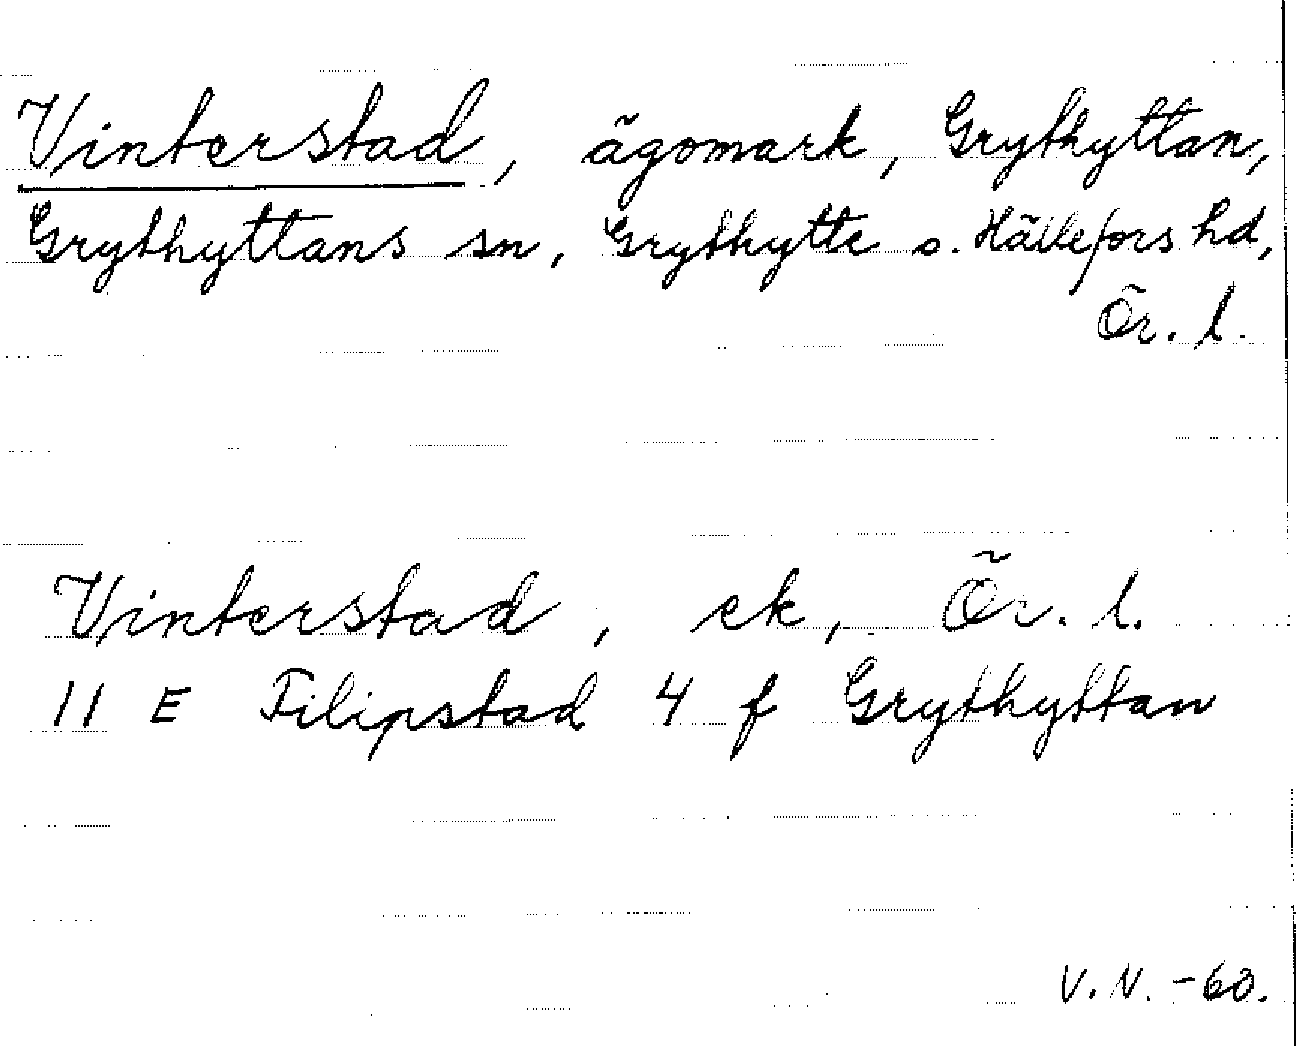 Vinterstad, ägomark, Grythyttan,
Grythyttans sn, Grythytte o. Hällefors hd,
Ör. l.
Vinterstad, ek, Ör. l.
11 E Filipstad 4 f Grythyttan
V. N. -60.